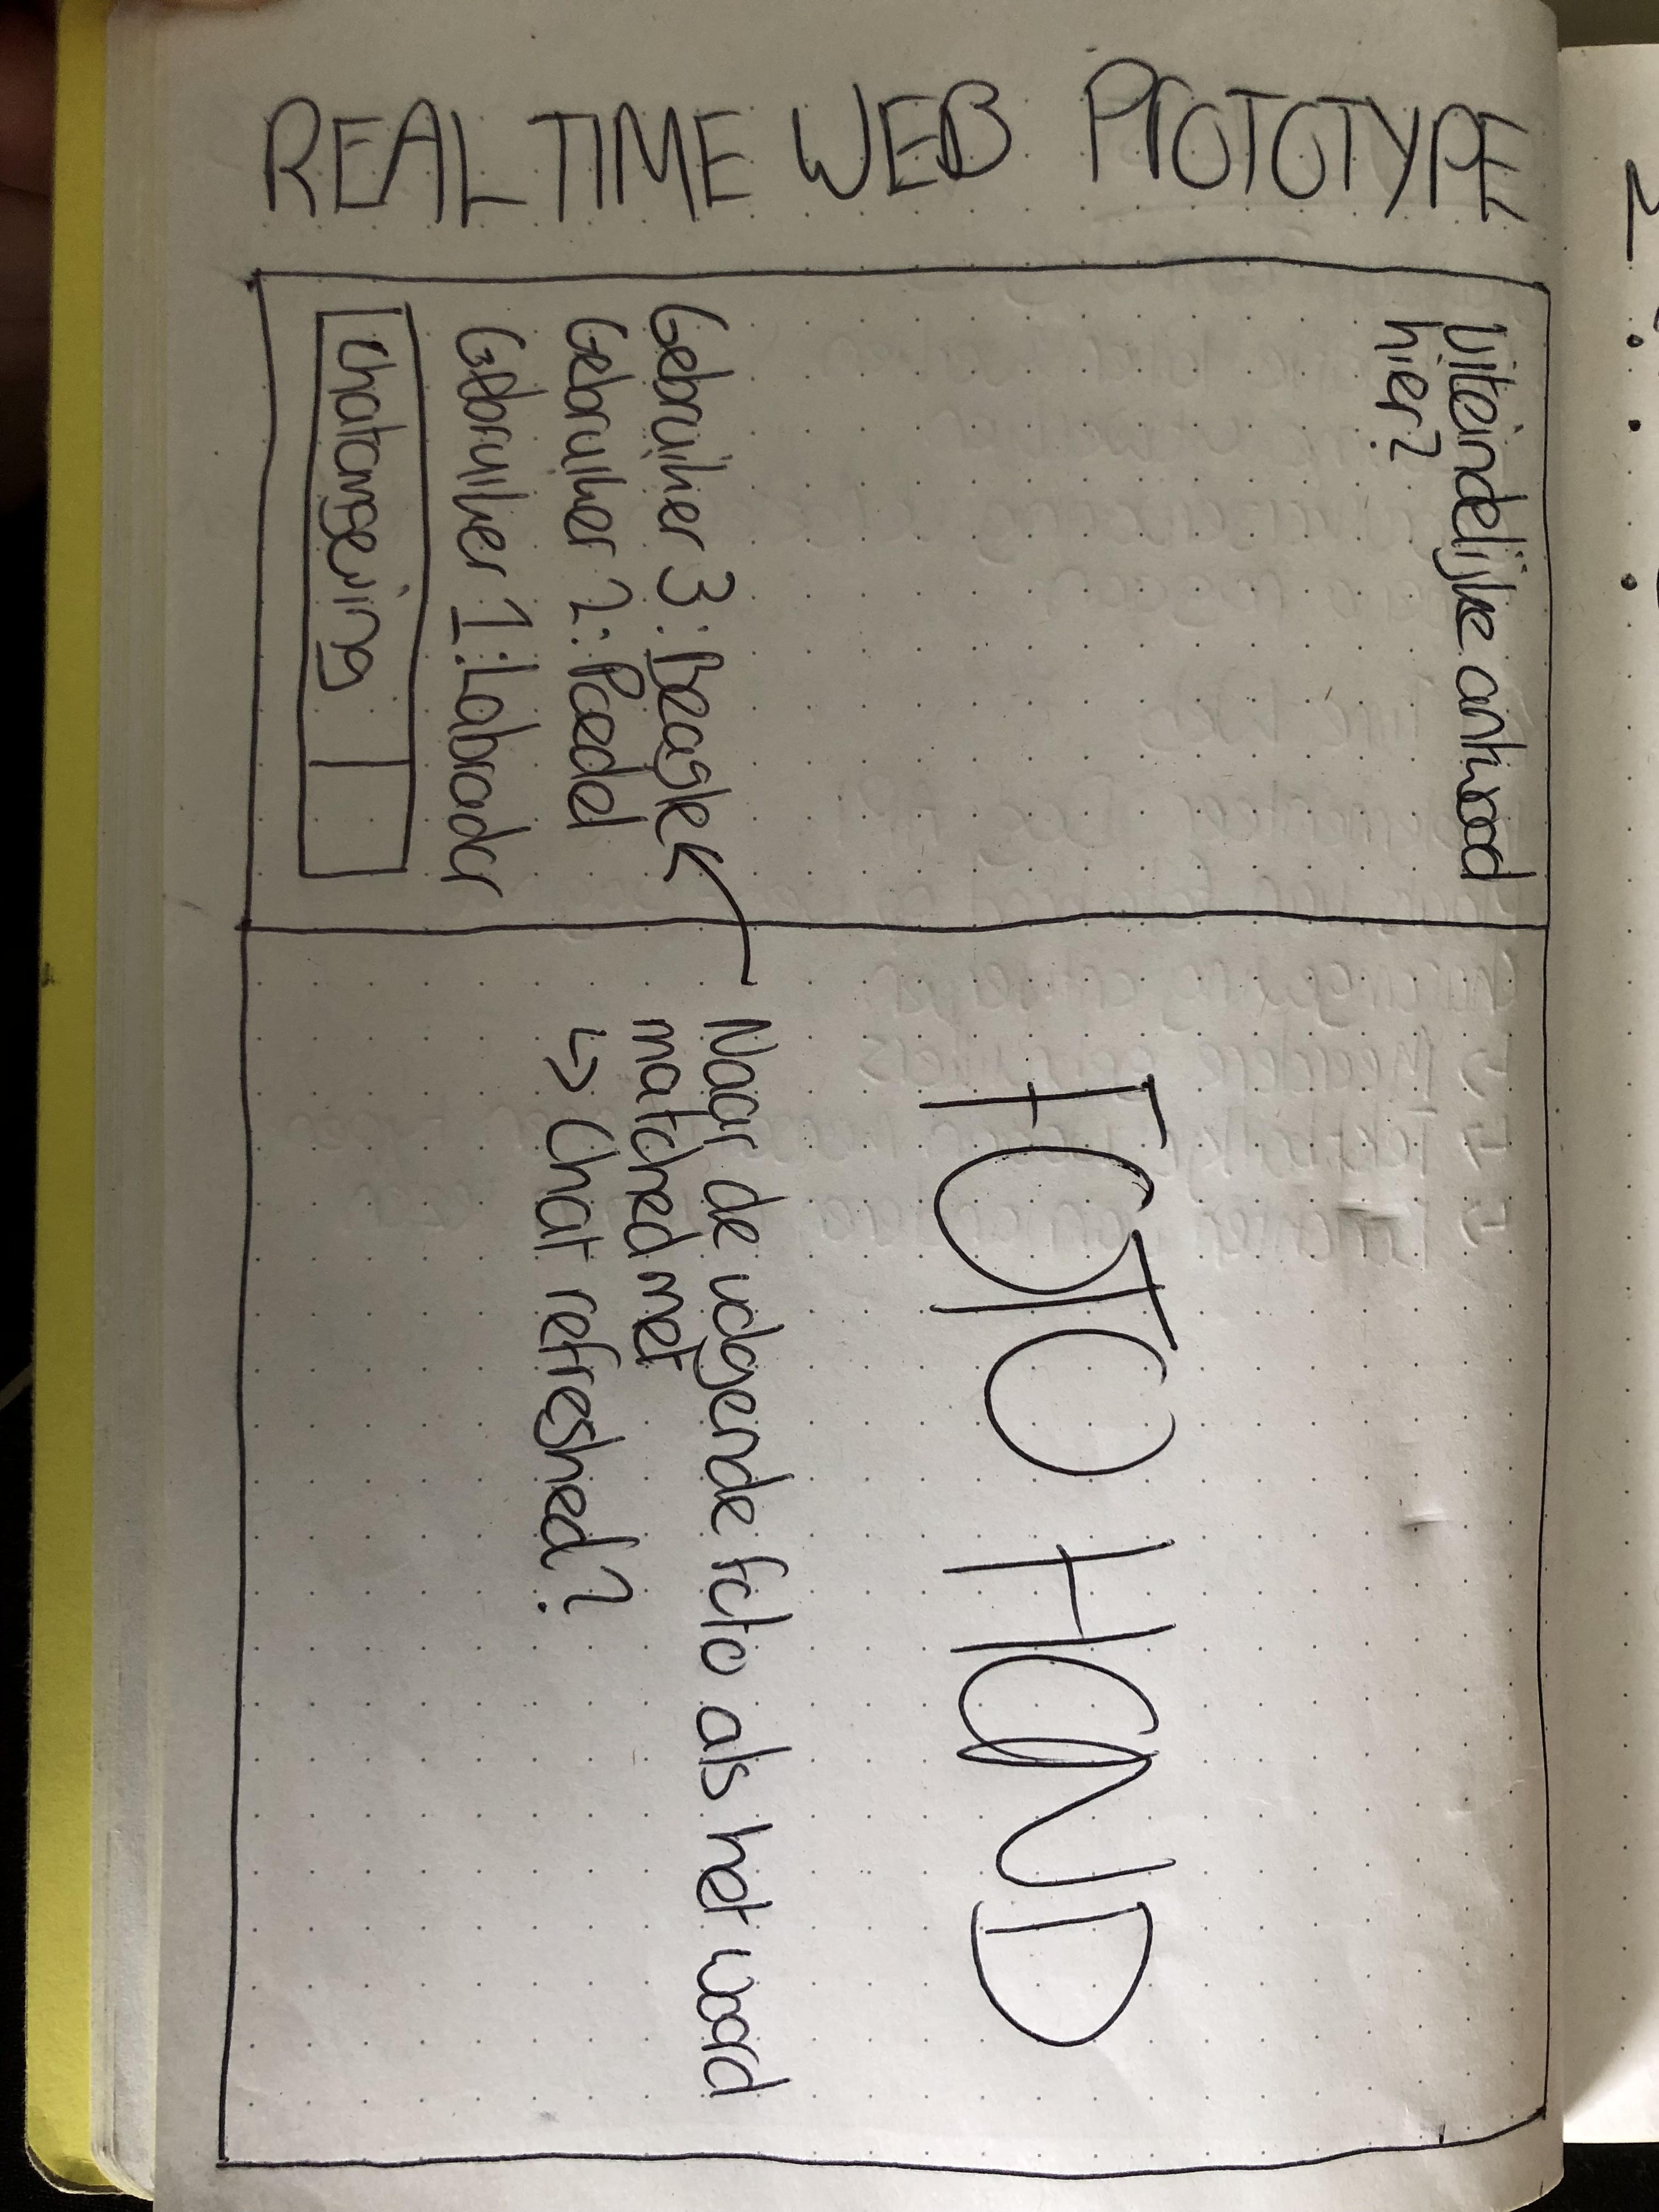 REAL TIME WEB PROTOTYPE
Uiteindelijke antwoord
hier?
Gebruiker 3: Beagle
Gebruiker 2: Poedel
Gebruiker 1: Labrador
FOTO HOND
Naar de volgende foto als het word
matched met
↳ Chat refreshed?